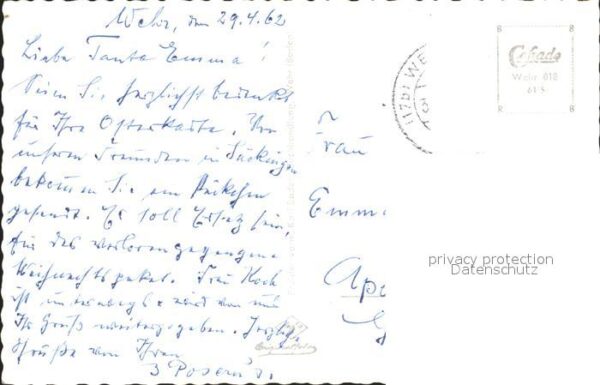 Wehr, den 29.4.62
Liebe Tante Emma!
Seien Sie herzlichst bedankt
für Ihre Osterkarte. Von
unseren Freunden in Säckingen
bekommen Sie ein Päckchen
gesandt. Es soll Ersatz sein,
für das verloren gegangene
Weihnachtspaket. Frau Koch
ist unterwegs & wird von uns
Ihr Gruß weitergegeben. Herzliche
Grüße von Ihren
3 Posern's.
Frau
Emma
Cekade
Wehr 618
61 S
8 8
8 8
(17b) WE
privacy protection
Datenschutz